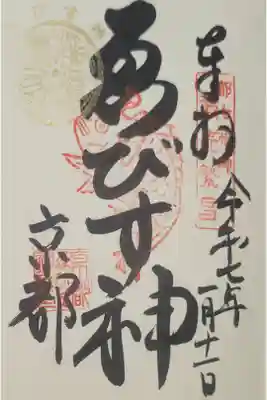 奉拝
令和七年
一月十一日
ゑびす神
京都